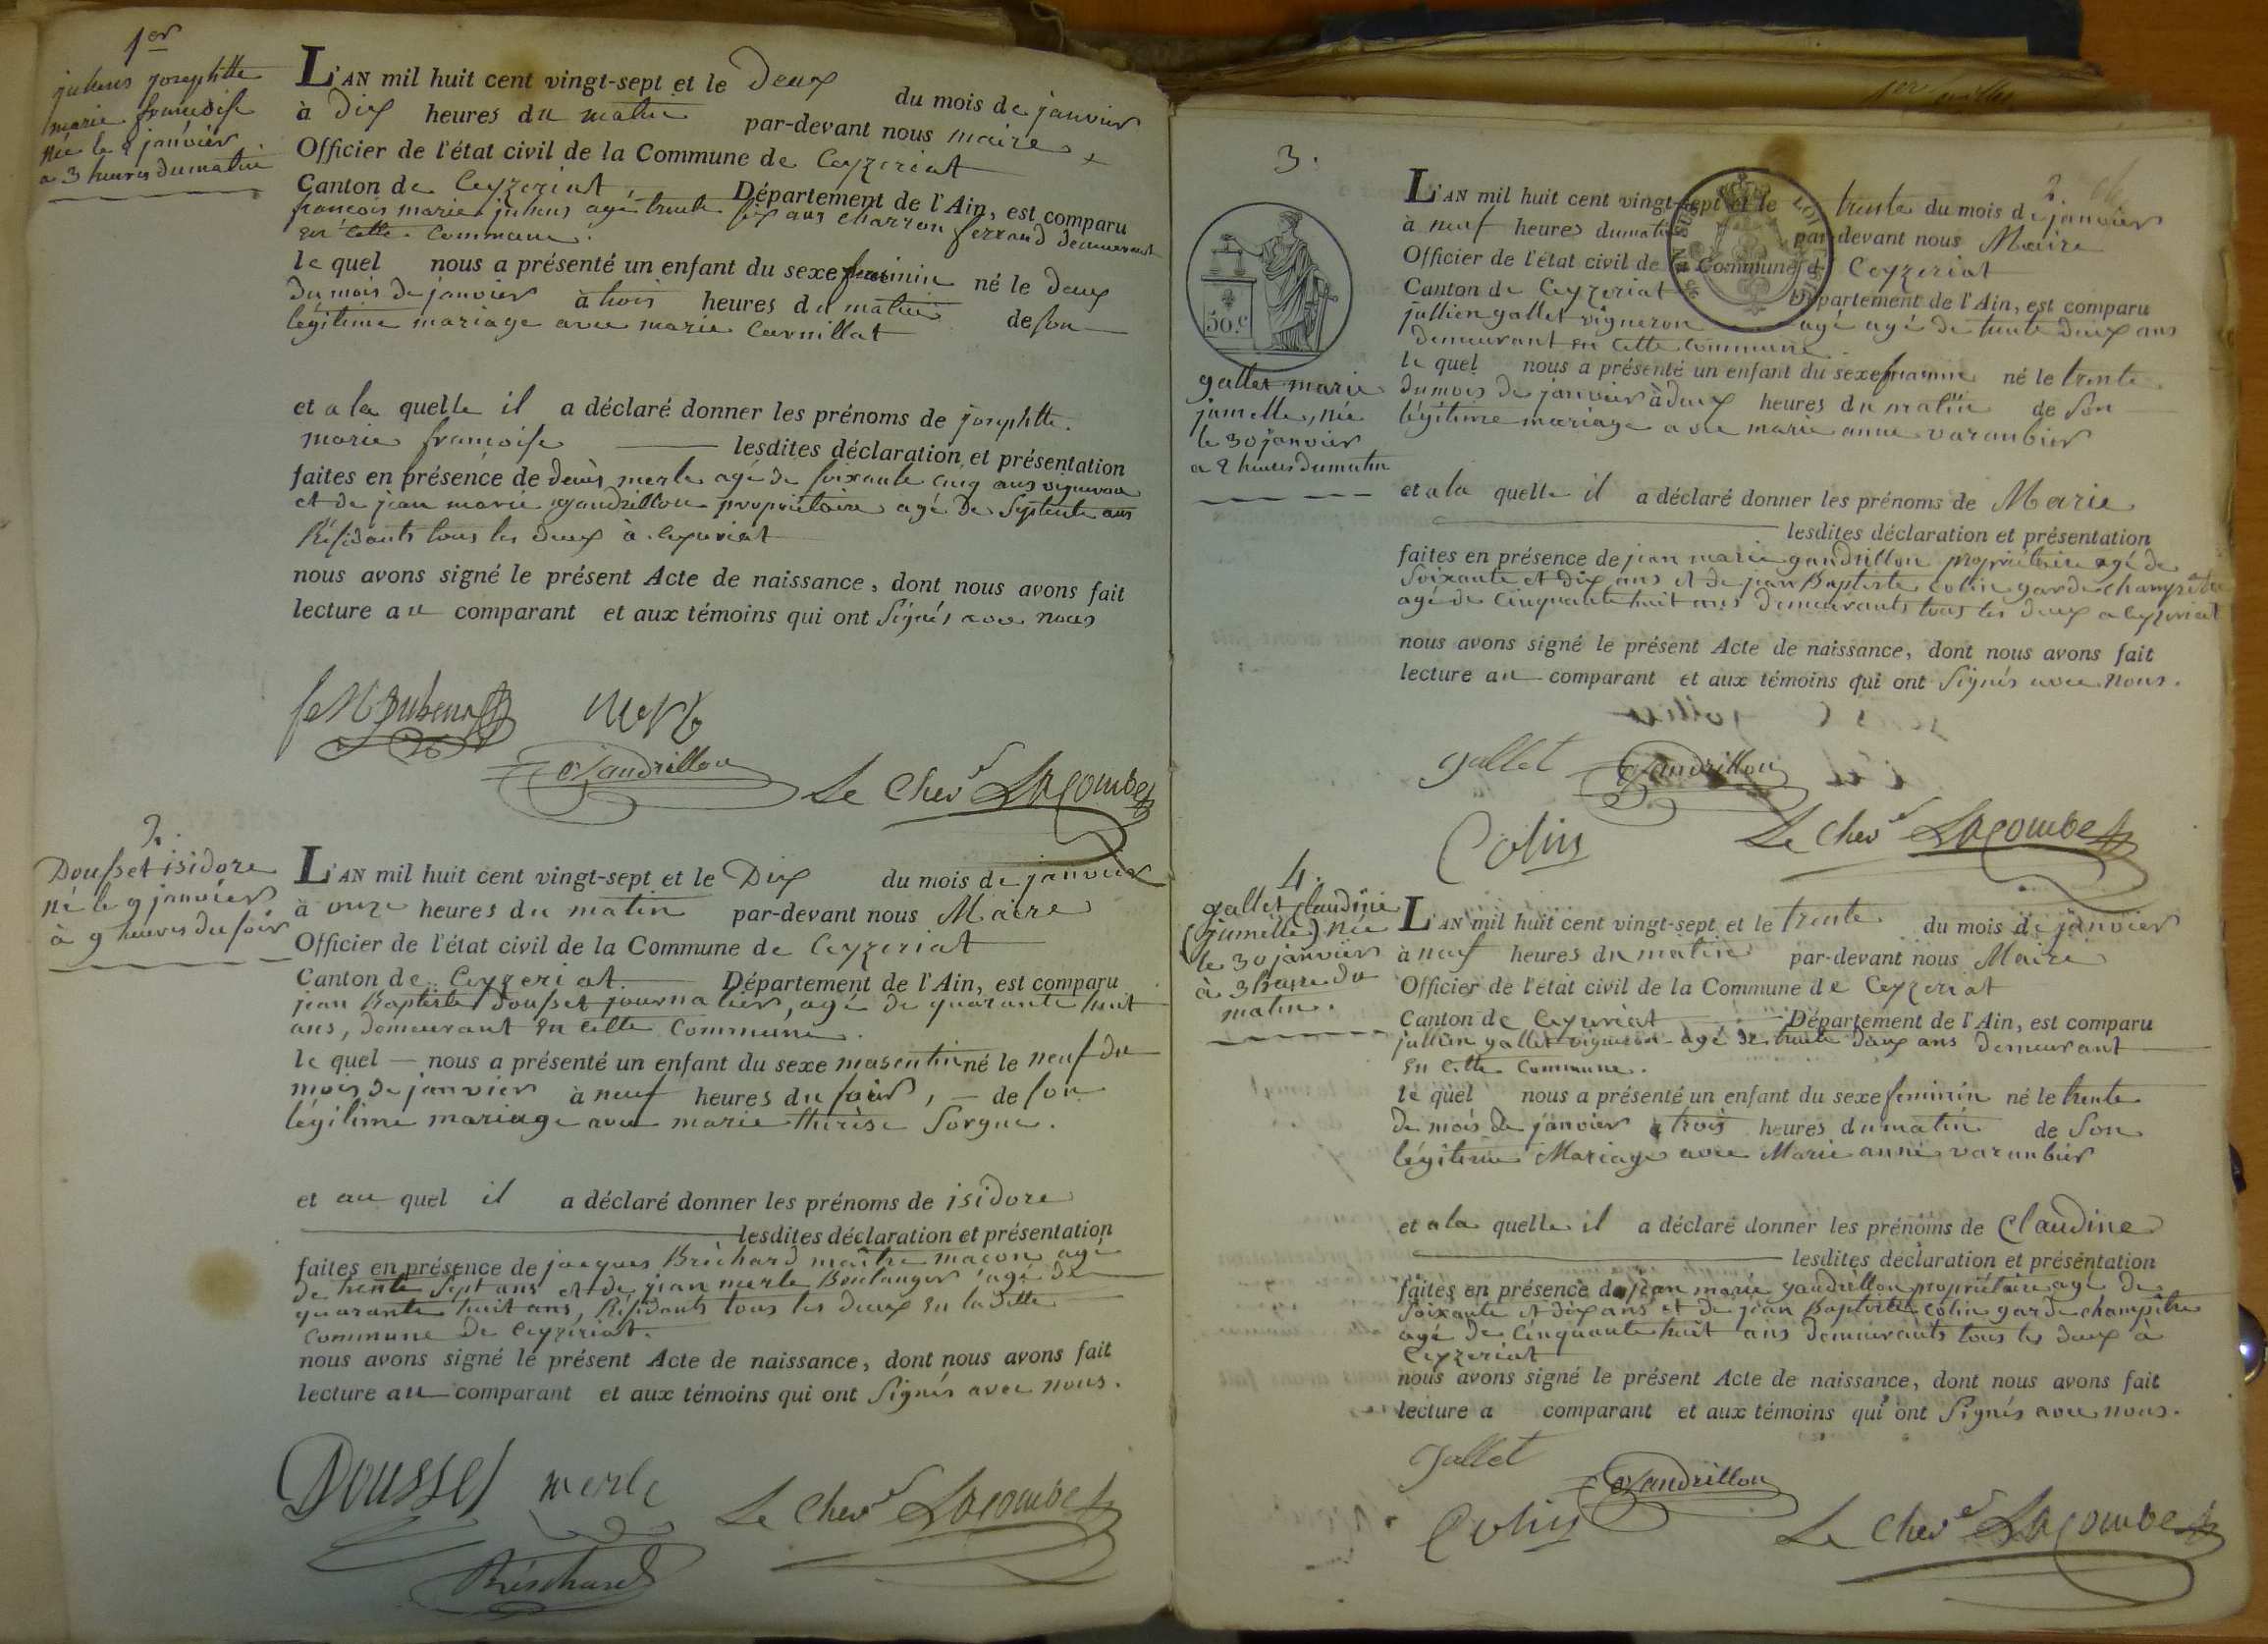 1er
josephtte
marie francoise
née le 2 janvier
a 3 heures du matin
L'AN mil huit cent vingt-sept et le Deux du mois de janvier
à Dix heures du matin par-devant nous maire
Officier de l'état civil de la Commune de Ceyzeriat
Canton de Ceyzeriat Département de l'Ain, est comparu
francois marie agé trente six ans charron demeurant
en cette commune.
le quel nous a présenté un enfant du sexe feminin né le Deux
du mois de janvier à trois heures du matin de son
légitime mariage avec marie
et a la quelle il a déclaré donner les prénoms de josephtte
marie francoise lesdites déclaration et présentation
faites en présence de denis merle agé de soixante cinq ans vigneron
et de jean marie gandrillon propriétaire agé de Septente ans
Résidants tous les deux à ceyzeriat
nous avons signé le présent Acte de naissance, dont nous avons fait
lecture au comparant et aux témoins qui ont signés avec nous
Merle
Gandrillon
Le Chevr Lacombe
2.
Dousset isidore
né le 9 janvier
à 9 heures du soir
L'AN mil huit cent vingt-sept et le Dix du mois de janvier
à onze heures du matin par-devant nous Maire
Officier de l'état civil de la Commune de Ceyzeriat
Canton de Ceyzeriat Département de l'Ain, est comparu
jean Baptiste Dousset journalier, agé de quarante huit
ans, demeurant en cette Commune.
le quel nous a présenté un enfant du sexe masculin né le neuf du
mois de janvier à neuf heures du soir, de son
légitime mariage avec marie thérèse Sorgue.
et au quel il a déclaré donner les prénoms de isidore
lesdites déclaration et présentation
faites en présence de jacques Bréchard maître macon agé
de trente Sept ans et de jean merle Boulanger agé de
quarante huit ans, Résidants tous les deux en la ditte
Commune de Ceyzériat.
nous avons signé le présent Acte de naissance, dont nous avons fait
lecture au comparant et aux témoins qui ont signés avec nous.
Dousset merle
Le Chevr Lacombe
Bréchard
3.
2
50.c
gallet marie
jumelle, née
le 30 janvier
a 2 heures du matin
L'AN mil huit cent vingt-sept et le trente du mois de janvier
à neuf heures du matin par-devant nous Maire
Officier de l'état civil de la Commune de Ceyzeriat
Canton de Ceyzeriat Département de l'Ain, est comparu
jullien gallet vigneron agé agé de trente deux ans
demeurant en cette commune
le quel nous a présenté un enfant du sexe feminin né le trente
du mois de janvier à deux heures du matin de son
légitime mariage avec marie anne varanbier
et a la quelle il a déclaré donner les prénoms de Marie
lesdites déclaration et présentation
faites en présence de jean marie gandrillon propriétaire agé de
soixante et dix ans et de jean Baptiste colin garde champêtre
agé de cinquante huit ans demeurants tous les deux a ceyzeriat
nous avons signé le présent Acte de naissance, dont nous avons fait
lecture au comparant et aux témoins qui ont signés avec nous.
gallet Gandrillon
Colin Le Chevr Lacombe
4.
gallet Claudine
(jumelle) née
le 30 janvier
à 3 heure du
matin.
L'AN mil huit cent vingt-sept et le trente du mois de janvier
à neuf heures du matin par-devant nous Maire
Officier de l'état civil de la Commune de Ceyzeriat
Canton de Ceyzeriat Département de l'Ain, est comparu
jullien gallet vigneron agé de trente deux ans demeurant
en cette Commune.
le quel nous a présenté un enfant du sexe feminin né le trente
de mois de janvier a trois heures du matin de son
légitime Mariage avec Marie anne varanbier
et a la quelle il a déclaré donner les prénoms de Claudine
lesdites déclaration et présentation
faites en présence de jean marie gandrillon propriétaire agé de
soixante et dix ans et de jean Baptiste colin garde champêtre
agé de cinquante huit ans demeurants tous les deux à
Ceyzeriat
nous avons signé le présent Acte de naissance, dont nous avons fait
lecture a comparant et aux témoins qui ont signés avec nous.
gallet Gandrillon
Colin Le Chevr Lacombe